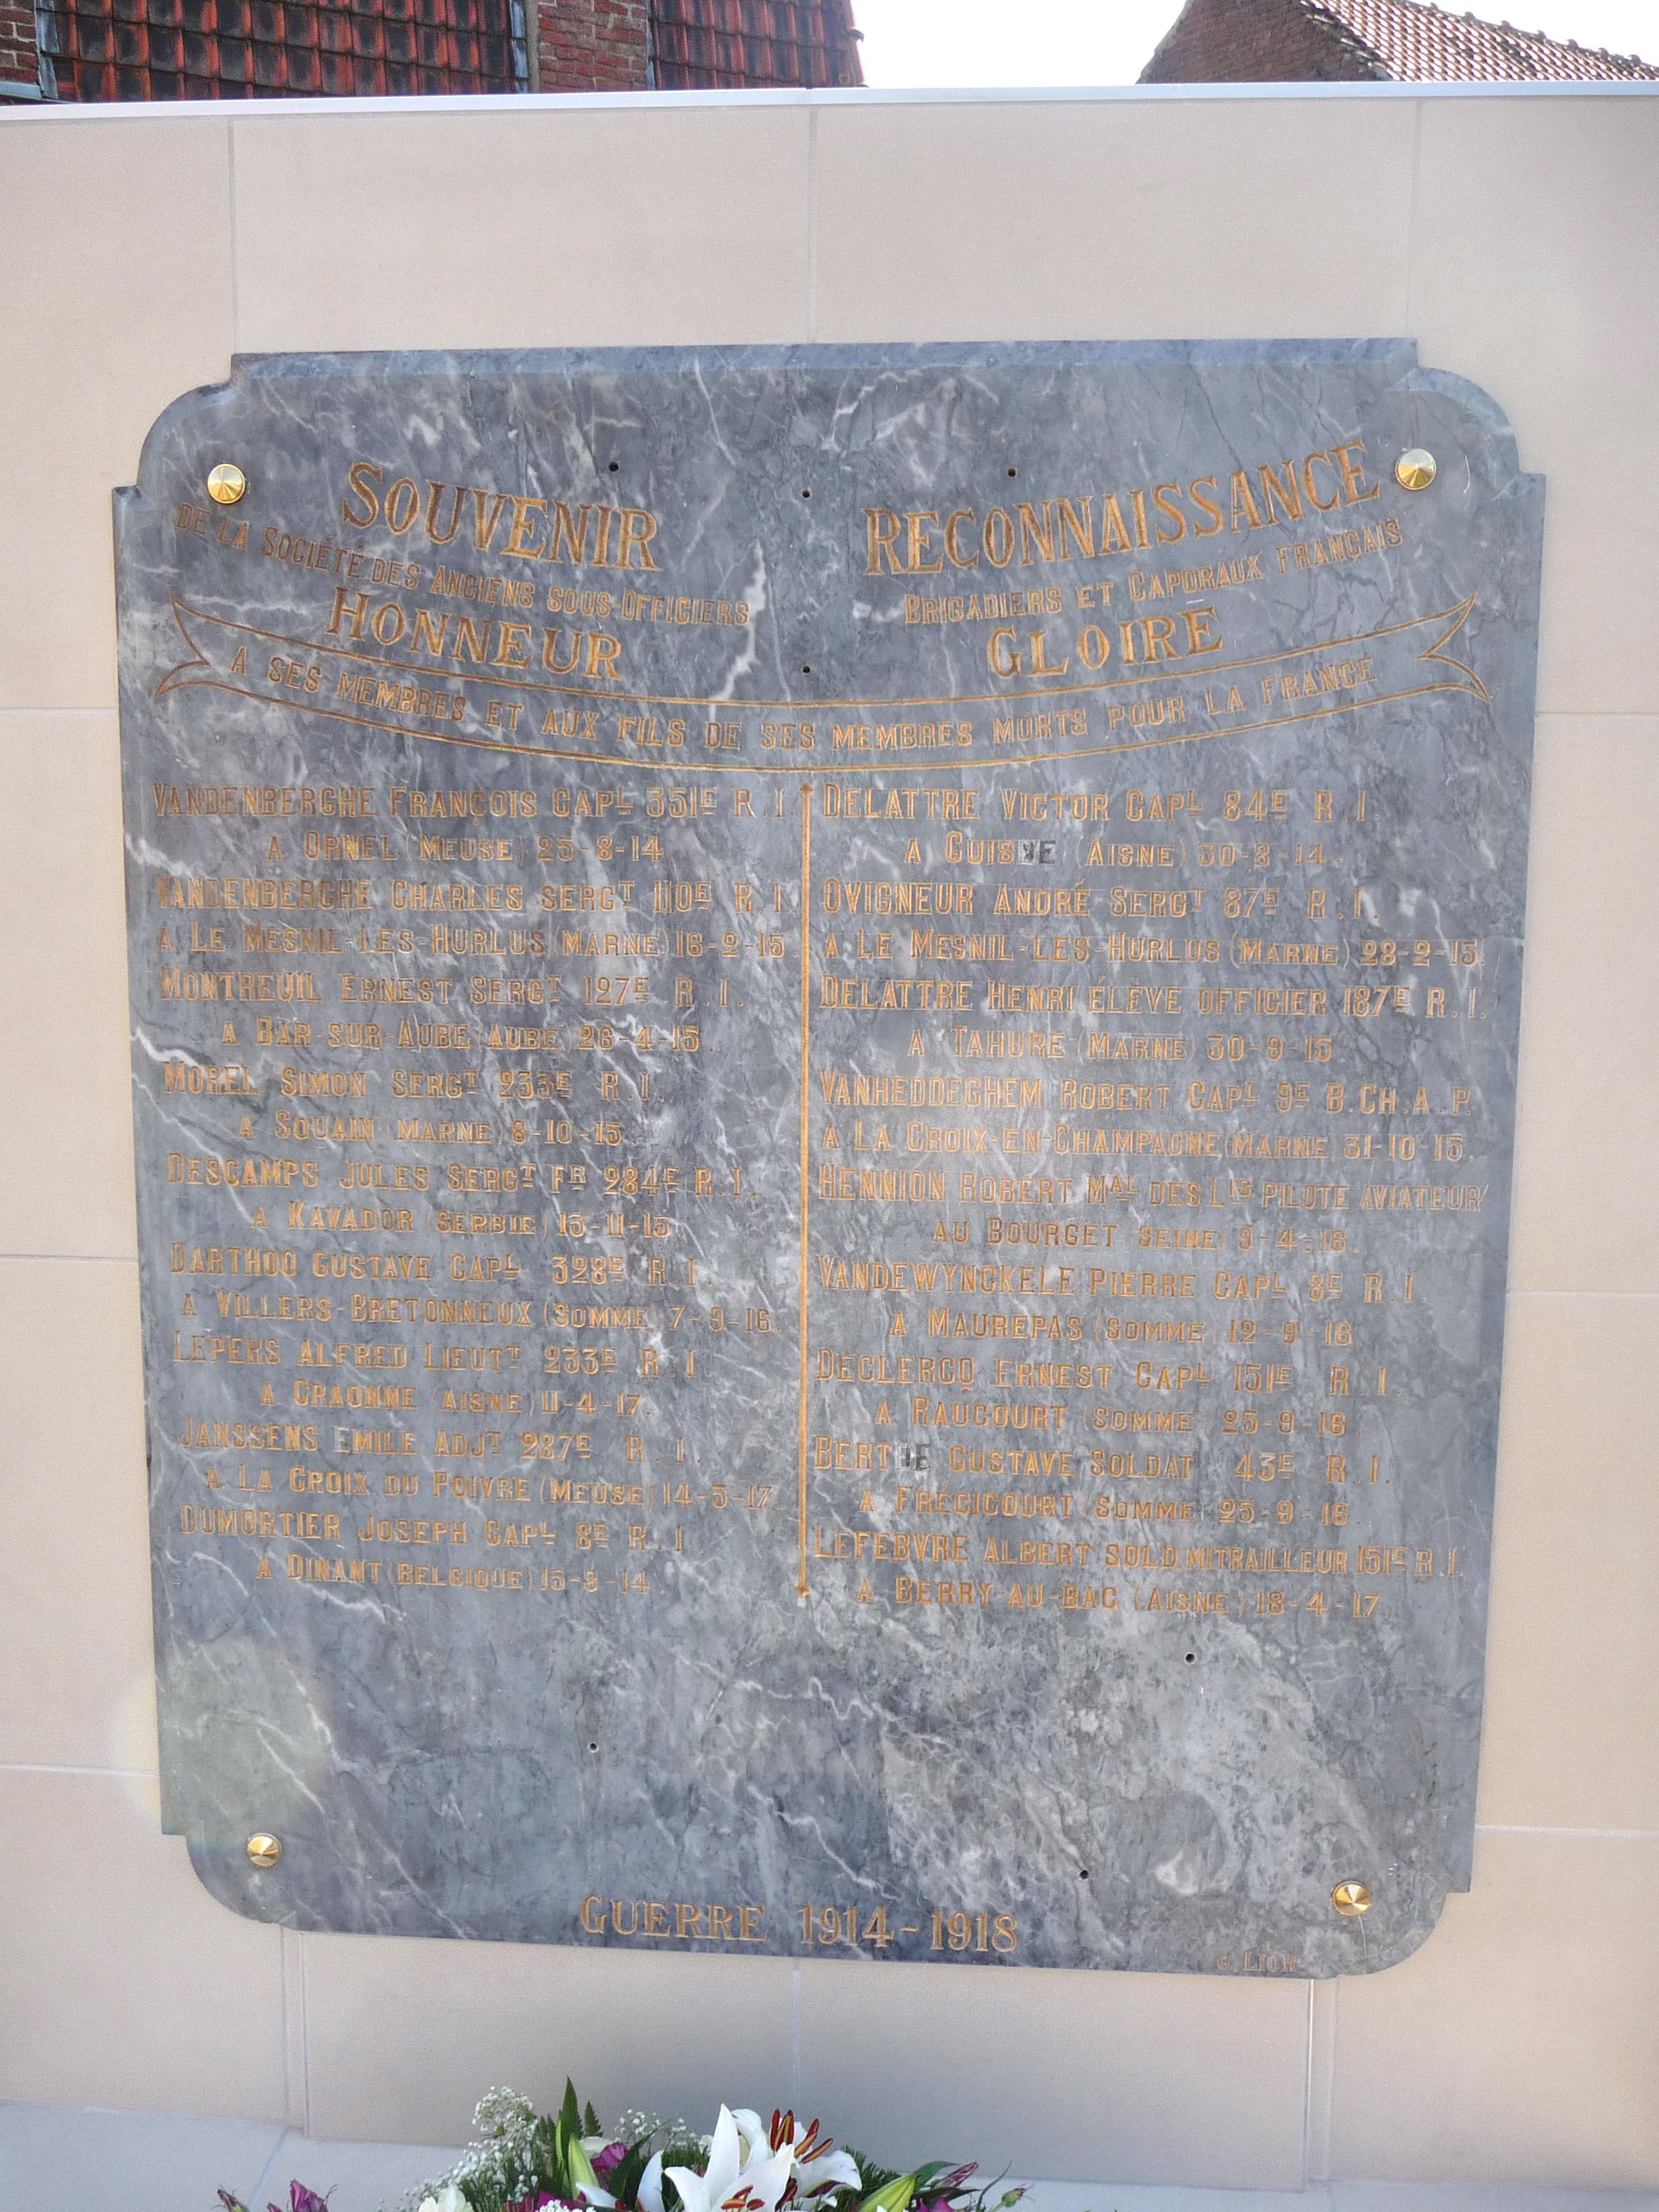 SOUVENIR RECONNAISSANCE
DE LA SOCIÉTÉ DES ANCIENS SOUS-OFFICIERS BRIGADIERS ET CAPORAUX FRANCAIS
HONNEUR GLOIRE
A SES MEMBRES ET AUX FILS DE SES MEMBRES MORTS POUR LA FRANCE
VANDENBERGHE FRANÇOIS CAPL 351E R.I.
A ORNEL (MEUSE) 25-8-14
VANDENBERGHE CHARLES SERGT 110E R.I.
A LE MESNIL-LES-HURLUS (MARNE) 16-2-15
MONTREUIL ERNEST SERGT 127E R.I.
A BAR-SUR-AUBE (AUBE) 26-4-15.
MOREL SIMON SERGT 233E R.I.
A SOUAIN (MARNE) 8-10-15.
DESCAMPS JULES SERGT FR 284E R.I.
A KAVADOR (SERBIE) 13-11-15
DARTHOO GUSTAVE CAPL 328E R.I.
A VILLERS-BRETONNEUX (SOMME) 7-9-16.
LEPERS ALFRED LIEUTT 233E R.I.
A CRAONNE (AISNE) 11-4-17.
JANSSENS EMILE ADJT 287E R.I.
A LA CROIX DU POIVRE (MEUSE) 14-5-17.
DUMORTIER JOSEPH CAPL 8E R.I.
A DINANT (BELGIQUE) 15-8-14
DELATTRE VICTOR CAPL 84E R.I.
A (AISNE) 30-8-14.
OVIGNEUR ANDRÉ SERGT 87E R.I.
A LE MESNIL-LES-HURLUS (MARNE) 28-2-15.
DELATTRE HENRI ÉLÈVE OFFICIER 187E R.I.
A TAHURE (MARNE) 30-9-15
VANHEDDEGHEM ROBERT CAPL 9E B.CH.A.P.
A LA CROIX-EN-CHAMPAGNE (MARNE) 31-10-15.
HENNION ROBERT MAL DES LIS PILOTE AVIATEUR
AU BOURGET (SEINE) 9-4-16.
VANDEWYNCKELE PIERRE CAPL 8E R.I.
A MAUREPAS (SOMME) 12-9-16
DECLERCQ ERNEST CAPL 151E R.I.
A RAUCOURT (SOMME) 25-9-16.
GUSTAVE SOLDAT 43E R.I.
A FREGICOURT (SOMME) 25-9-16.
LEFEBVRE ALBERT SOLD MITRAILLEUR 151E R.I.
A BERRY-AU-BAC (AISNE) 18-4-17.
GUERRE 1914-1918